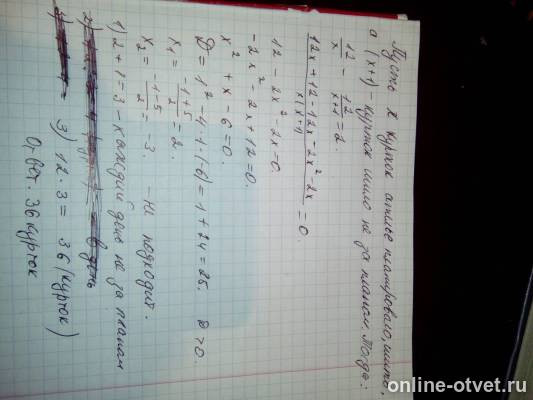 Пусть x курток ателье планировало шить,
а (x+1) - курток шило не за планом. Тогда:
12/x - 12/x+1 = 2.
12x+12-12x-2x²-2x / x(x+1) = 0.
12 - 2x² - 2x = 0.
-2x² - 2x + 12 = 0.
x² + x - 6 = 0.
D = 1² - 4·1·(-6) = 1 + 24 = 25. D > 0.
x₁ = -1+5/2 = 2.
x₂ = -1-5/2 = -3. - не подходит.
1) 2+1=3 - каждый день не за планом
2)
в день
3) 12·3 = 36 (курток)
Ответ. 36 курток
online-otvet.ru